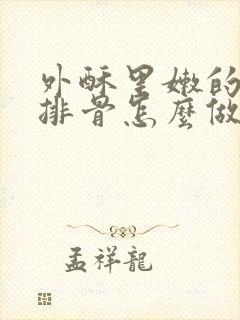 外酥里嫩的
排骨怎麼做
孟祥龍